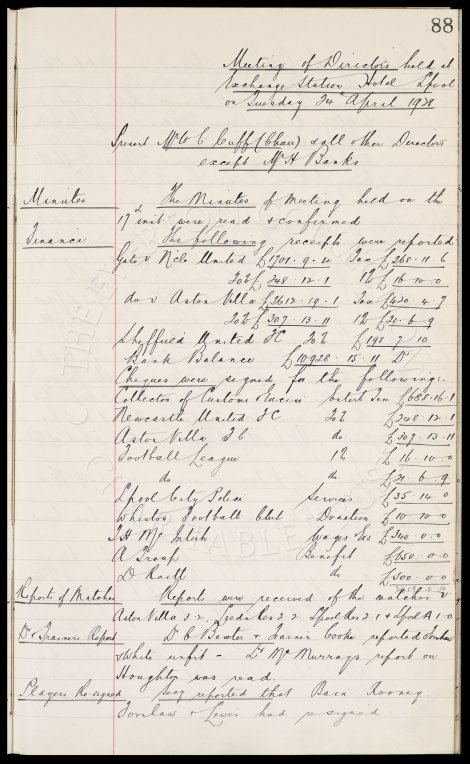 88
Meeting of Directors held at
Exchange Station Hotel Lpool
on Tuesday 24th April 1928
Present Mr W C Cuff (Chair) & all other Directors
except Mr H Banks
Minutes The Minutes of Meeting held on the
17th inst were read & confirmed
Finance The following receipts were reported
Gate v N'cle United £1701. 9. 4 Tax £268. 11. 6
20% £248. 12. 1 1% £16. 10. 0
do v Aston Villa £2612. 19. 1 Tax £420. 4. 7
20% £307. 13. 11 1% £21. 6. 9
Sheffield United FC 20% £198. 7. 10
Bank Balance £10928. 15. 11 Dr
Cheques were signed for the following:-
Collector of Customs & Excise Entert Tax £688. 16. 1
Newcastle United FC 20% £248. 12. 1
Aston Villa FC do £307. 13. 11
Football League 1% £16. 10. 0
do do £21. 6. 9
Lpool City Police Services £35. 14. 0
Whiston Football Club Donation £10. 10. 0
T H McIntosh Wages &c £340. 0. 0
A Troup Benefit £650. 0. 0
D Raitt do £500. 0. 0
Report of Matches Reports were received of the matches v
Aston Villa 3 2. Leeds Res 2 2 Lpool Res 2 1 & Lpool A 1 0
Dr & Trainers Report Dr C Baxter & Trainer Cooke reported
& White unfit - Dr McMurrays report on
Houghton was read.
Players Re-signed Secy reported that Bain Rooney
& Lewis had re-signed